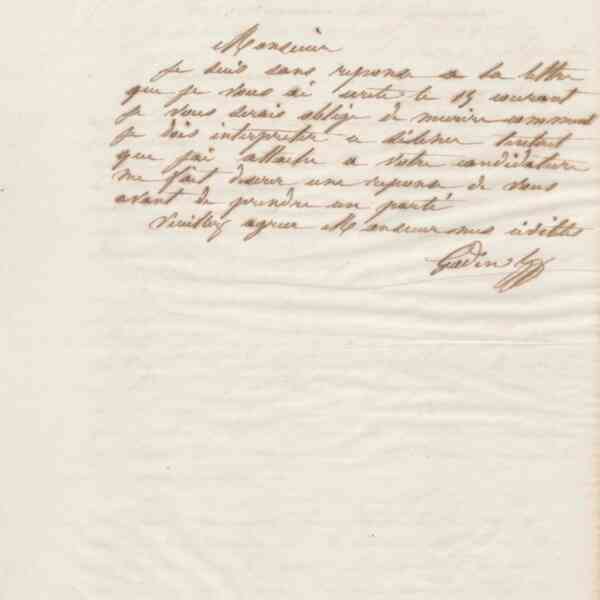 Monsieur
je suis sans reponse a la lettre
que je vous ai ecrite le 15 courant
je vous serais obligé de m'ecrire comment
je dois interpreter ce silence l'interet
que j'ai attaché a votre candidature
me fait desirer une reponse de vous
avant de prendre un parti
Veuillez agreer Monsieur mes civilités
Godin